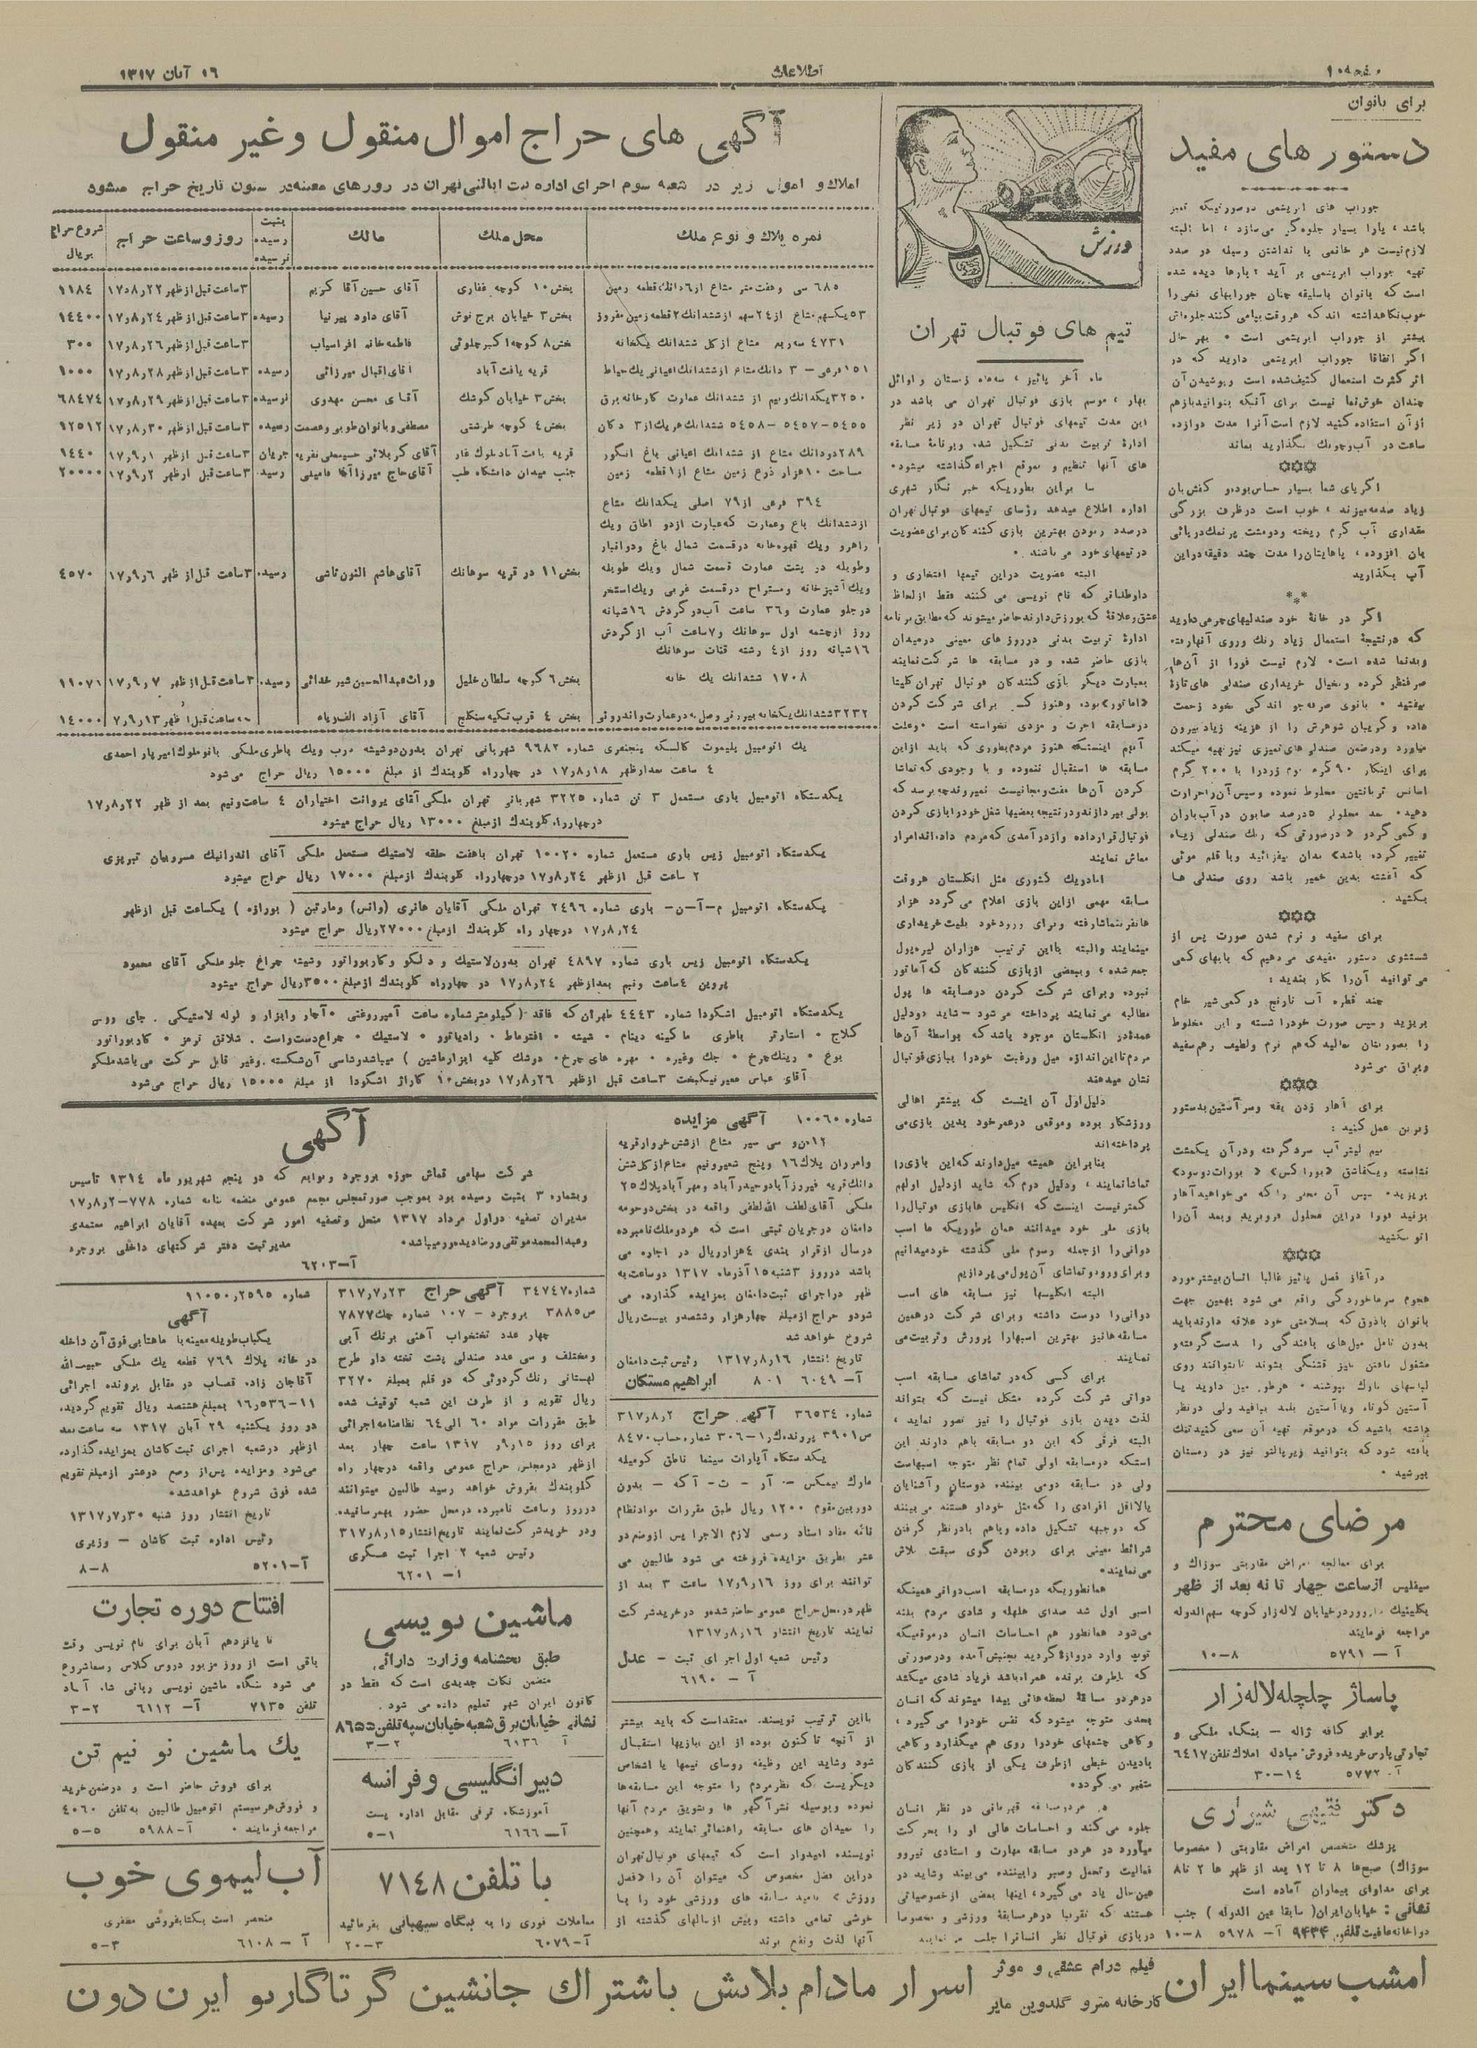 اطلاعات
۱۶ آبان ۱۳۱۷
برای بانوان
دستورهای مفید
جوراب های ابریشمی در صورتیکه تمیز
باشد ، پارا بسیار جلوه گر می سازد ، اما البته
لازم نیست هر خانمی با نداشتن وسیله در صدد
تهیه جوراب ابریشمی بر آید ؛ بارها دیده شده
است که بانوان باسلیقه چنان جورابهای نخی را
خوب نگاهداشته اند که هر وقت بپامی کنند جلوه اش
بیشتر از جوراب ابریشمی است • بهر حال
اگر اتفاقا جوراب ابریشمی دارید که در
اثر کثرت استعمال کثیف شده است و پوشیدن آن
چندان خوش نما نیست برای آنکه بتوانید بازهم
از آن استفاده کنید لازم است آنرا مدت دوازده
ساعت در آب وجوهرنمک بگذارید بماند
اگر پای شما بسیار حساس بوده و کفش بان
زیاد صدمه میزند ، خوب است در ظرف بزرگی
مقداری آب گرم ریخته و دو مشت پر نمک دریائی
بان افزوده ، پاهایتان را مدت چند دقیقه در این
آب بگذارید
اگر در خانه خود صندلیهای چرمی دارید
که در نتیجه استعمال زیاد رنگ و روی آنها رفته
و بدنما شده است • لازم نیست فورا از آن ها
صرفنظر کرده و بخیال خریداری صندلی های تازه
بیفتید • بانوی صرفه جو اندکی بخود زحمت
داده و گریبان شوهرش را از هزینه زیاد بیرون
میاورد و در ضمن صندلی های تمیزی نیز تهیه میکند
برای سفید و نرم شدن صورت پس از
شستشوی دستور مفیدی می دهیم که بابهای کمی
می توانید آن را بکار بندید :
چند قطره آب نارنج در کمی شیر خام
بریزید و سپس صورت خودرا شسته و این مخلوط
را بصورتتان بمالید که هم نرم و لطیف و هم سفید
و براق می شود
برای آهار زدن یقه و سر آستین بدستور
زیرین عمل کنید :
نیم لیتر آب سرد گرفته و در آن یکمشت
نشاسته و یکقاشق «بوراکس» « بورات دوسود»
بریزید • سپس آن چیز را که می خواهید آهار
بزنید فورا در این محلول فروبرید و بعد آن را
اتو بکشید
در آغاز فصل پائیز غالبا انسان بیشتر مورد
هجوم سرماخوردگی واقع می شود بهمین جهت
بانوان باذوق که بسلامتی خود علاقه دارند باید
بدون تامل میل های بافندگی را بدست گرفته و
مشغول بافتن بلیز قشنگی بشوند تا بتوانند روی
لباسهای نازک بپوشند • هرطور میل دارید با
آستین کوتاه و یا آستین بلند ببافید ولی در نظر
داشته باشید که در موقع تهیه آن سعی کنید تنگ
بافته شود که بتوانید زیر پالتو نیز در زمستان
بپوشید •
مرضای محترم
برای معالجه امراض مقاربتی سوزاک و
سیفلیس از ساعت چهار تا نه بعد از ظهر
بکلینیک در خیابان لاله زار کوچه سهم الدوله
مراجعه فرمایند
آ – ۵۷۹۱ ۸–۱۰
پاساژ چلچله لاله زار
برابو کافه ژاله – بنگاه ملکی و
تجارتی پارس خرید و فروش؛ مبادله املاک تلفن ۶۴۱۷
آ ۵۷۷۲ ۱۴–۳۰
دکتر فقیهی شیرازی
پزشک متخصص امراض مقاربتی ( مخصوصا
سوزاک) صبح ها ۸ تا ۱۲ بعد از ظهر ها ۲ تا ۸
برای مداوای بیماران آماده است
نشانی : خیابان ایران ( سابقا عین الدوله ) جنب
دواخانه عافیت تلفون ۹۴۳۴ آ– ۵۹۷۸ ۸–۱۰
ورزش
تیم های فوتبال تهران
ماه آخر پائیز ، سه ماه زمستان و اوائل
بهار ، موسم بازی فوتبال تهران می باشد در
این مدت تیمهای فوتبال تهران در زیر نظر
ادارۀ تربیت بدنی تشکیل شده و برنامۀ مسابقه
های آنها تنظیم و بموقع اجراء گذاشته میشود•
بنا براین بطوریکه خبر نگار شهری
اداره اطلاع میدهد رؤسای تیمهای فوتبال تهران
درصدد ربودن بهترین بازی کنندگان برای عضویت
در تیمهای خود می باشند •
البته عضویت در این تیمها افتخاری و
داوطلبانی که نام نویسی می کنند فقط از لحاظ
عشق و علاقۀ که بورزش دارند حاضر میشوند که مطابق برنامه
ادارۀ تربیت بدنی در روز های معینی در میدان
بازی حاضر شده و در مسابقه ها شرکت نمایند
بعبارت دیگر بازی کنندگان فوتبال تهران کلیتا
«آماتور» بوده و هنوز کسی برای شرکت کردن
در مسابقه اجرت و مزدی نخواسته است • و علت
آنهم اینستکه هنوز مردم بطوری که باید از این
مسابقه ها استقبال ننموده و با وجودی که تماشا
کردن آن ها مفت و مجانیست نمیروند چه برسد که
پولی بپردازند و در نتیجه بعضیها شغل خودرا بازی کردن
فوتبال قرار داده و از در آمدی که مردم داده اند امرار
معاش نمایند
اما در یک کشوری مثل انگلستان هر وقت
مسابقه مهمی از این بازی اعلام می گردد هزار
ها نفر بتماشا رفته و برای ورود خود بلیت خریداری
مینمایند و البته باین ترتیب هزاران لیره پول
جمع شده ، و بعضی از بازی کنندگان که آماتور
نبوده و برای شرکت کردن در مسابقه ها پول
مطالبه می نمایند پرداخته می شود – شاید دو دلیل
عمده در انگلستان موجود باشد که بواسطۀ آن ها
مردم تا این اندازه میل و رغبت خودرا ببازی فوتبال
نشان میدهند
دلیل اول آن اینست که بیشتر اهالی
ورزشکار بوده و موقعی در عمر خود بدین بازی می
پرداخته اند
بنابراین همیشه میل دارند که این بازی را
تماشا نمایند ، و دلیل دوم که شاید از دلیل اولهم
کمتر نیست اینست که انگلیس ها بازی فوتبال را
بازی ملی خود میدانند همان طوریکه ما اسب
دوانی را از جمله رسوم ملی گذشته خود میدانیم
و برای ورود و تماشای آن پول می پردازیم
البته انگلیسها نیز مسابقه های اسب
دوانی را دوست داشته و برای شرکت در همین
مسابقه ها نیز بهترین اسبها را پرورش و تربیت می
نمایند
برای کسی که در تماشای مسابقه اسب
دوانی شرکت کرده مشکل نیست که بتواند
لذت دیدن بازی فوتبال را نیز تصور نماید ،
البته فرقی که این دو مسابقه باهم دارند این
استکه در مسابقه اولی تمام نظر متوجه اسبهاست
ولی در مسابقه دومی بیننده دوستان و آشنایان
یا لااقل افرادی را که مثل خود او هستند می بینند
که دو جبهه تشکیل داده و باهم بادر نظر گرفتن
شرائط معینی برای ربودن گوی سبقت تلاش
می نمایند •
همانطوریکه در مسابقه اسب دوانی همینکه
اسبی اول شد صدای هلهله و شادی مردم بلند
می شود همانطور هم احساسات انسان در موقعیکه
توپ وارد دروازه گردید بجنبش آمده و در صورتی
که باطرف برنده همراه باشد فریاد شادی میکشد
در هر دو مسابقۀ لحظه هائی پیدا میشوند که انسان
بعدی متوجه میشود که نفس خودرا می گیرد ،
و گاهی چشمهای خودرا روی هم میگذارد و گاهی
بادیدن خبطی از طرف یکی از بازی کنندگان
متغیر می گردد•
در هر دو مسابقه قهرمانی در نظر انسان
جلوه می کند و احساسات عالی او را بحرکت
میآورد در هر دو مسابقه مهارت و استادی نیرو
فعالیت و تحمل و صبر را بیننده می بیند و شاید در
عین حال یاد می گیرد ، اینها بعضی از خصوصیاتی
هستند که تقریبا در هر مسابقۀ ورزشی و مخصوصا
در بازی فوتبال نظر انسانرا جلب می نمایند
بااین ترتیب نویسنده معتقد است که باید بیشتر
از آنچه تا کنون بوده از این بازیها استقبال
شود و شاید این وظیفه روسای تیمها یا اشخاص
دیگریست که نظر مردم را متوجه این مسابقه ها
نموده و بوسیله نشر آگهی ها و تشویق مردم آنها
را بمیدان های مسابقه راهنمائی نمایند و همچنین
نویسنده امیدوار است که تیمهای فوتبال تهران
در این فصل مخصوص که میتوان آن را «فصل
ورزش» نامید مسابقه های ورزشی خود را با
خوشی تمامی داشته و بیش از سالهای گذشته از
آنها لذت و نفع برند
آگهی های حراج اموال منقول و غیر منقول
املاک و اموال زیر در شعبه سوم اجرای اداره ثبت ایالتی تهران در روزهای معینه در ستون تاریخ حراج میشود
نمره پلاک و نوع ملک | محل ملک | مالک | بثبت رسیده نرسیده | روز و ساعت حراج | شروع حراج بریال
۶۸۵ سی و هفت متر مشاع از ۶ دانک قطعه زمین | بخش ۱۰ کوچه غفاری | آقای حسین آقا کریم | ۳ ساعت قبل از ظهر ۱۷ر۸ر۲۲ | ۱۱۸۴
۵۳ یکسهم مشاع از ۲۴ سهم از ششدانک ۲ قطعه زمین مفروز | بخش ۳ خیابان برج نوش | آقای داود پیرنیا | رسیده | ۳ ساعت قبل از ظهر ۱۷ر۸ر۲۴ | ۱۴۴۰۰
۴۷۳۱ سه ربع مشاع از کل ششدانک یکخانه | بخش ۸ کوچه اکبر جلوئی | فاطمه خانم افراسیاب | ۳ ساعت قبل از ظهر ۱۷ر۸ر۲۶ | ۳۰۰
۱۵۱ فرعی – ۳ دانک مشاع از ششدانک اعیانی یک حیاط | قریه یافت آباد | آقای اقبال میرزائی | رسیده | ۳ ساعت قبل از ظهر ۱۷ر۸ر۲۸ | ۱۰۰۰
۳۲۵۰ یکدانک و نیم از ششدانک عمارت کارخانه برق | بخش ۳ خیابان کوشک | آقای محسن مهدوی | نرسیده | ۳ ساعت قبل از ظهر ۱۷ر۸ر۲۹ | ۶۸۴۷۴
۵۴۵۵–۵۴۵۷–۵۴۵۸ ششدانک هریک از ۳ دکان | بخش ۴ کوچه طرشتی | مصطفی و بانوان طوبی و عصمت | رسیده | ۳ ساعت قبل از ظهر ۱۷ر۸ر۳۰ | ۹۲۵۱۲
۲۸۹ دو دانک مشاع از ششدانک اعیانی باغ انگور | آقای کربلائی حسینعلی نفریه | جریان | ۳ ساعت قبل از ظهر ۱۷ر۹ر۱ | ۱۴۴۰
مساحت ۱۰ هزار ذرع زمین مشاع از ۱ قطعه زمین | جنب میدان دانشگاه طب | آقای حاج میرزا آقا | رسیده | ۳ ساعت قبل از ظهر ۱۷ر۹ر۲ | ۲۰۰۰۰
۳۹۴ فرعی از ۷۹ اصلی یکدانک مشاع
از ششدانک باغ و عمارت که عبارت از دو اطاق و یک
راهرو و یک قهوه خانه در قسمت شمال باغ و دو انبار
و طویله در پشت عمارت قسمت شمال و یک طویله
و یک آشپزخانه و مستراح در قسمت غربی و یک استخر
در جلو عمارت و ۳۶ ساعت آب در گردش ۱۶ شبانه
روز از چشمه اول سوهانک و ۷ ساعت آب از گردش
۱۶ شبانه روز از ۴ رشته قنات سوهانک | بخش ۱۱ در قریه سوهانک | آقای هاشم النون تاشی | رسیده | ۳ ساعت قبل از ظهر ۱۷ر۹ر۶ | ۴۵۷۰
۱۷۰۸ ششدانک یک خانه | بخش ۶ کوچه سلطان خلیل | وراث عبدالحسین شیر خدائی | رسیده | ۳ ساعت قبل از ظهر ۱۷ر۹ر۷ | ۱۱۰۷۱
۳۲۳۲ ششدانک یکخانه بیرونی و صل به در عمارت و اندرونی | بخش ۴ قرب تکیه سنگلج | آقای آزاد | ۱۴۰۰۰
یک اتومبیل پلیموت کالسکه پنجنفری شماره ۹۶۸۲ شهربانی تهران بدون دوشیشه درب و یک باطری ملکی بانو ملوک امیر یار احمدی
۴ ساعت بعد از ظهر ۱۷ر۸ر۱۸ در چهار راه کلوبندک از مبلغ ۱۵۰۰۰ ریال حراج می شود
یکدستگاه اتومبیل باری مستعمل ۳ تن شماره ۳۲۲۵ شهربانی تهران ملکی آقای پروانت اختیاران ۴ ساعت و نیم بعد از ظهر ۱۷ر۸ر۲۲
در چهار راه کلوبندک از مبلغ ۱۳۰۰۰ ریال حراج میشود
یکدستگاه اتومبیل زیس باری مستعمل شماره ۱۰۰۲۰ تهران باهفت حلقه لاستیک مستعمل ملکی آقای اندرانیک مسروبیان تبریزی
۲ ساعت قبل از ظهر ۱۷ر۸ر۲۴ در چهار راه کلوبندک از مبلغ ۱۷۰۰۰ ریال حراج میشود
یکدستگاه اتومبیل م–آ–ن– باری شماره ۲۴۹۶ تهران ملکی آقایان هانری (وانس) و مارتین ( بوراژه ) یکساعت قبل از ظهر
۱۷ر۸ر۲۴ در چهار راه کلوبندک از مبلغ ۲۷۰۰۰ ریال حراج میشود
یکدستگاه اتومبیل زیس باری شماره ۴۸۹۷ تهران بدون لاستیک و دلکو و کاربوراتور و شیشه چراغ جلو ملکی آقای محمود
پروین ۴ ساعت و نیم بعد از ظهر ۱۷ر۸ر۲۴ در چهار راه کلوبندک از مبلغ ۳۵۰۰ ریال حراج میشود
یکدستگاه اتومبیل اشکودا شماره ۴۴۴۳ طهران که فاقد ( کیلومتر شمار ساعت آمپر روغنی • آچار و ابزار و لوله لاستیکی . جای روس
کلاج • استارتر باطری ماکینه دینام • شیشه • افتوماط • رادیاتور • لاستیک • چراغ دست راست . شلاق ترمز • کاربوراتور
بوغ • رینگ چرخ • جک وغیره • مهره های چرخ • دوشک کلیه ابزار ماشین ) میباشد و شاسی آن شکسته . و غیر قابل حرکت می باشد ملکی
آقای عباس معیر نیکبخت ۳ ساعت قبل از ظهر ۱۷ر۸ر۲۶ در بخش ۱۰ کاراژ اشکودا از مبلغ ۱۵۰۰۰ ریال حراج می شود
شماره ۱۰۰۶۰ آگهی مزایده
۱۲ من و سی سیر مشاع از شش خروار قریه
وامرزان پلاک ۱۶ و پنج شعیر و نیم مشاع از کل شش
دانک قریه فیروز آباد و حیدر آباد و مهر آباد پلاک ۲۵
ملکی آقای لطف الله لطفی واقعه در بخش دو حومه
دامغان در جریان ثبتی است که هر دو ملک نامبرده
در سال از قرار بندی ۴ هزار ریال در اجاره می
باشد در روز ۳ شنبه ۱۵ آذر ماه ۱۳۱۷ دو ساعت به
ظهر در اجرای ثبت دامغان بمزایده گذارده می
شود و حراج از مبلغ چهار هزار و ششصد و بیست ریال
شروع خواهد شد
تاریخ انتشار ۱۳۱۷ر۸ر۱۶ رئیس ثبت دامغان
آ– ۶۰۴۹ ۸۰۱ ابراهیم مستکان
شماره ۳۶۵۳۴ آگهی حراج ۳۱۷ر۸ر۲
ص ۳۹۰۱ پرونده ک ر ۱–۳۰۶ شماره حساب ۸۴۷۰
یکدستگاه آپارات سینما ناطق کومیله
مارک نیمکس – آر – ت – آ که – بدون
دوربین مقوم ۱۲۰۰ ریال طبق مقررات مواد نظام
نامه مفاد اسناد رسمی لازم الاجرا پس از وضع دو
عشر بطریق مزایده فروخته می شود طالبین می
توانند برای روز ۱۷ر۹ر۱۶ ساعت ۳ بعد از
ظهر در محل حراج عمومی حاضر شده و در خرید شرکت
نمایند تاریخ انتشار ۱۳۱۷ر۸ر۱۶
رئیس شعبه اول اجرای ثبت – عدل
آ – ۶۱۹۰
آگهی
شرکت سهامی قماش حوزه بروجرد و توابع که در پنجم شهریور ماه ۱۳۱۴ تاسیس
و بشماره ۳ بثبت رسیده بود بموجب صورتمجلس مجمع عمومی منضمه نامه شماره ۷۷۸–۱۷ر۸ر۲
مدیران تصفیه در اول مرداد ۱۳۱۷ منحل و تصفیه امور شرکت بعهده آقایان ابراهیم معتمدی
و عبدالمحمد موثقی و رضا دیده ور میباشد • مدیر ثبت دفتر شرکتهای داخلی بروجرد
آ–۶۲۰۳
شماره ۳۴۷۴۷ آگهی حراج ۳۱۷ر۷ر۲۳
ص ۳۸۸۵ بروجرد – ۱۰۷ شماره چک ۷۸۷۷
چهار عدد تختخواب آهنی برنگ آبی
و مختلف و سی عدد صندلی پشت تخته دار طرح
لهستانی رنگ گردوئی که دو قلم بمبلغ ۳۲۷۰
ریال تقویم و از طرف این شعبه توقیف شده
طبق مقررات مواد ۶۰ الی ۶۴ نظامنامه اجرائی
برای روز ۱۵ر۹ر ۱۳۱۷ ساعت چهار بعد
از ظهر در مجلس حراج عمومی واقعه در چهار راه
کلوبندک بفروش خواهد رسید طالبین میتوانند
در روز و ساعت نامبرده در محل حضور بهمرسانیده
و در خرید شرکت نمایند تاریخ انتشار ۳۱۷ر۸ر۱۵
رئیس شعبه ۲ اجرا ثبت عسکری
آ– ۶۲۰۱
شماره ۱۱۰۵۰ر۲۵۹۵
آگهی
یکباب طویله معینه با ماهتابی فوق آن داخله
در خانه پلاک ۷۶۹ قطعه یک ملکی حبیب الله
آقاجان زاده قصاب در مقابل پرونده اجرائی
۱۱–۵۳۶ر۱۶ بمبلغ هشتصد ریال تقویم گردیده
در روز یکشنبه ۲۹ آبان ۱۳۱۷ سه ساعت بعد
از ظهر در شعبه اجرای ثبت کاشان بمزایده گذارده
می شود و مزایده پس از وضع دو عشر از مبلغ تقویم
شده فوق شروع خواهد شد •
تاریخ انتشار روز شنبه ۱۳۱۷ر۷ر۳۰
رئیس اداره ثبت کاشان – وزیری
آ–۵۲۰۱ ۸–۸
ماشین نویسی
طبق بخشنامه وزارت دارائی
متضمن نکات جدیدی است که فقط در
کانون ایران شهر تعلیم داده می شود .
نشانی خیابان برق شعبه خیابان سپه تلفن ۸۶۵۵
آ ۶۱۳۶ ۲–۳
افتتاح دوره تجارت
تا پانزدهم آبان برای نام نویسی وقت
باقی است از روز مزبور دروس کلاس رسما شروع
می شود بنگاه ماشین نویسی ربانی شاه آباد
تلفن ۷۱۳۵ آ– ۶۱۱۲ ۲–۳
دبیر انگلیسی و فرانسه
آموزشگاه ترقی مقابل اداره پست
آ– ۶۱۶۶ ۱–۵
یک ماشین نو نیم تن
برای فروش حاضر است و در ضمن خرید
و فروش هر سیستم اتومبیل طالبین به تلفن ۴۰۶۰
مراجعه فرمایند • آ–۵۹۸۸ ۵–۵
با تلفن ۷۱۴۸
معاملات فوری را به بنگاه سپهبانی بفرمائید
آ–۶۰۷۹ ۳–۲۰
آب لیموی خوب
منحصر است بکتابفروشی مظفری
آ – ۶۱۰۸ ۳–۵
امشب سینما ایران
فیلم درام عشقی و موثر
کارخانه مترو گلدوین مایر
اسرار مادام بلانش باشتراک جانشین گرتاگاربو ایرن دون